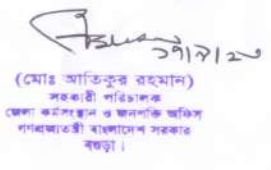 ২৭/৮/২০
(মোঃ আতিকুর রহমান)
সহকারী পরিচালক
জেলা কর্মসংস্থান ও জনশক্তি অফিস
গণপ্রজাতন্ত্রী বাংলাদেশ সরকার
বগুড়া।